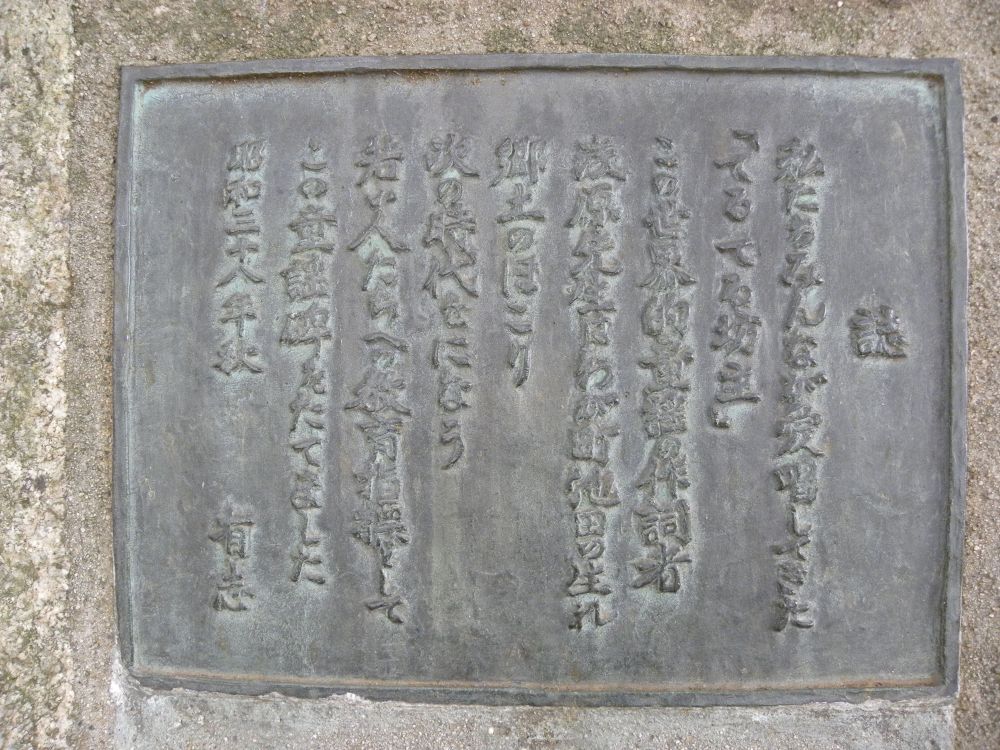 誌
私たちみんなが愛唱してきた
「てるてる坊主」
この世界的童謡の作詞者
浅原先生はわが町池田の生れ
郷土のほこり
次の時代をになう
若い人たちへの教育指標として
この童謡碑をたてました
昭和三十八年秋
有志